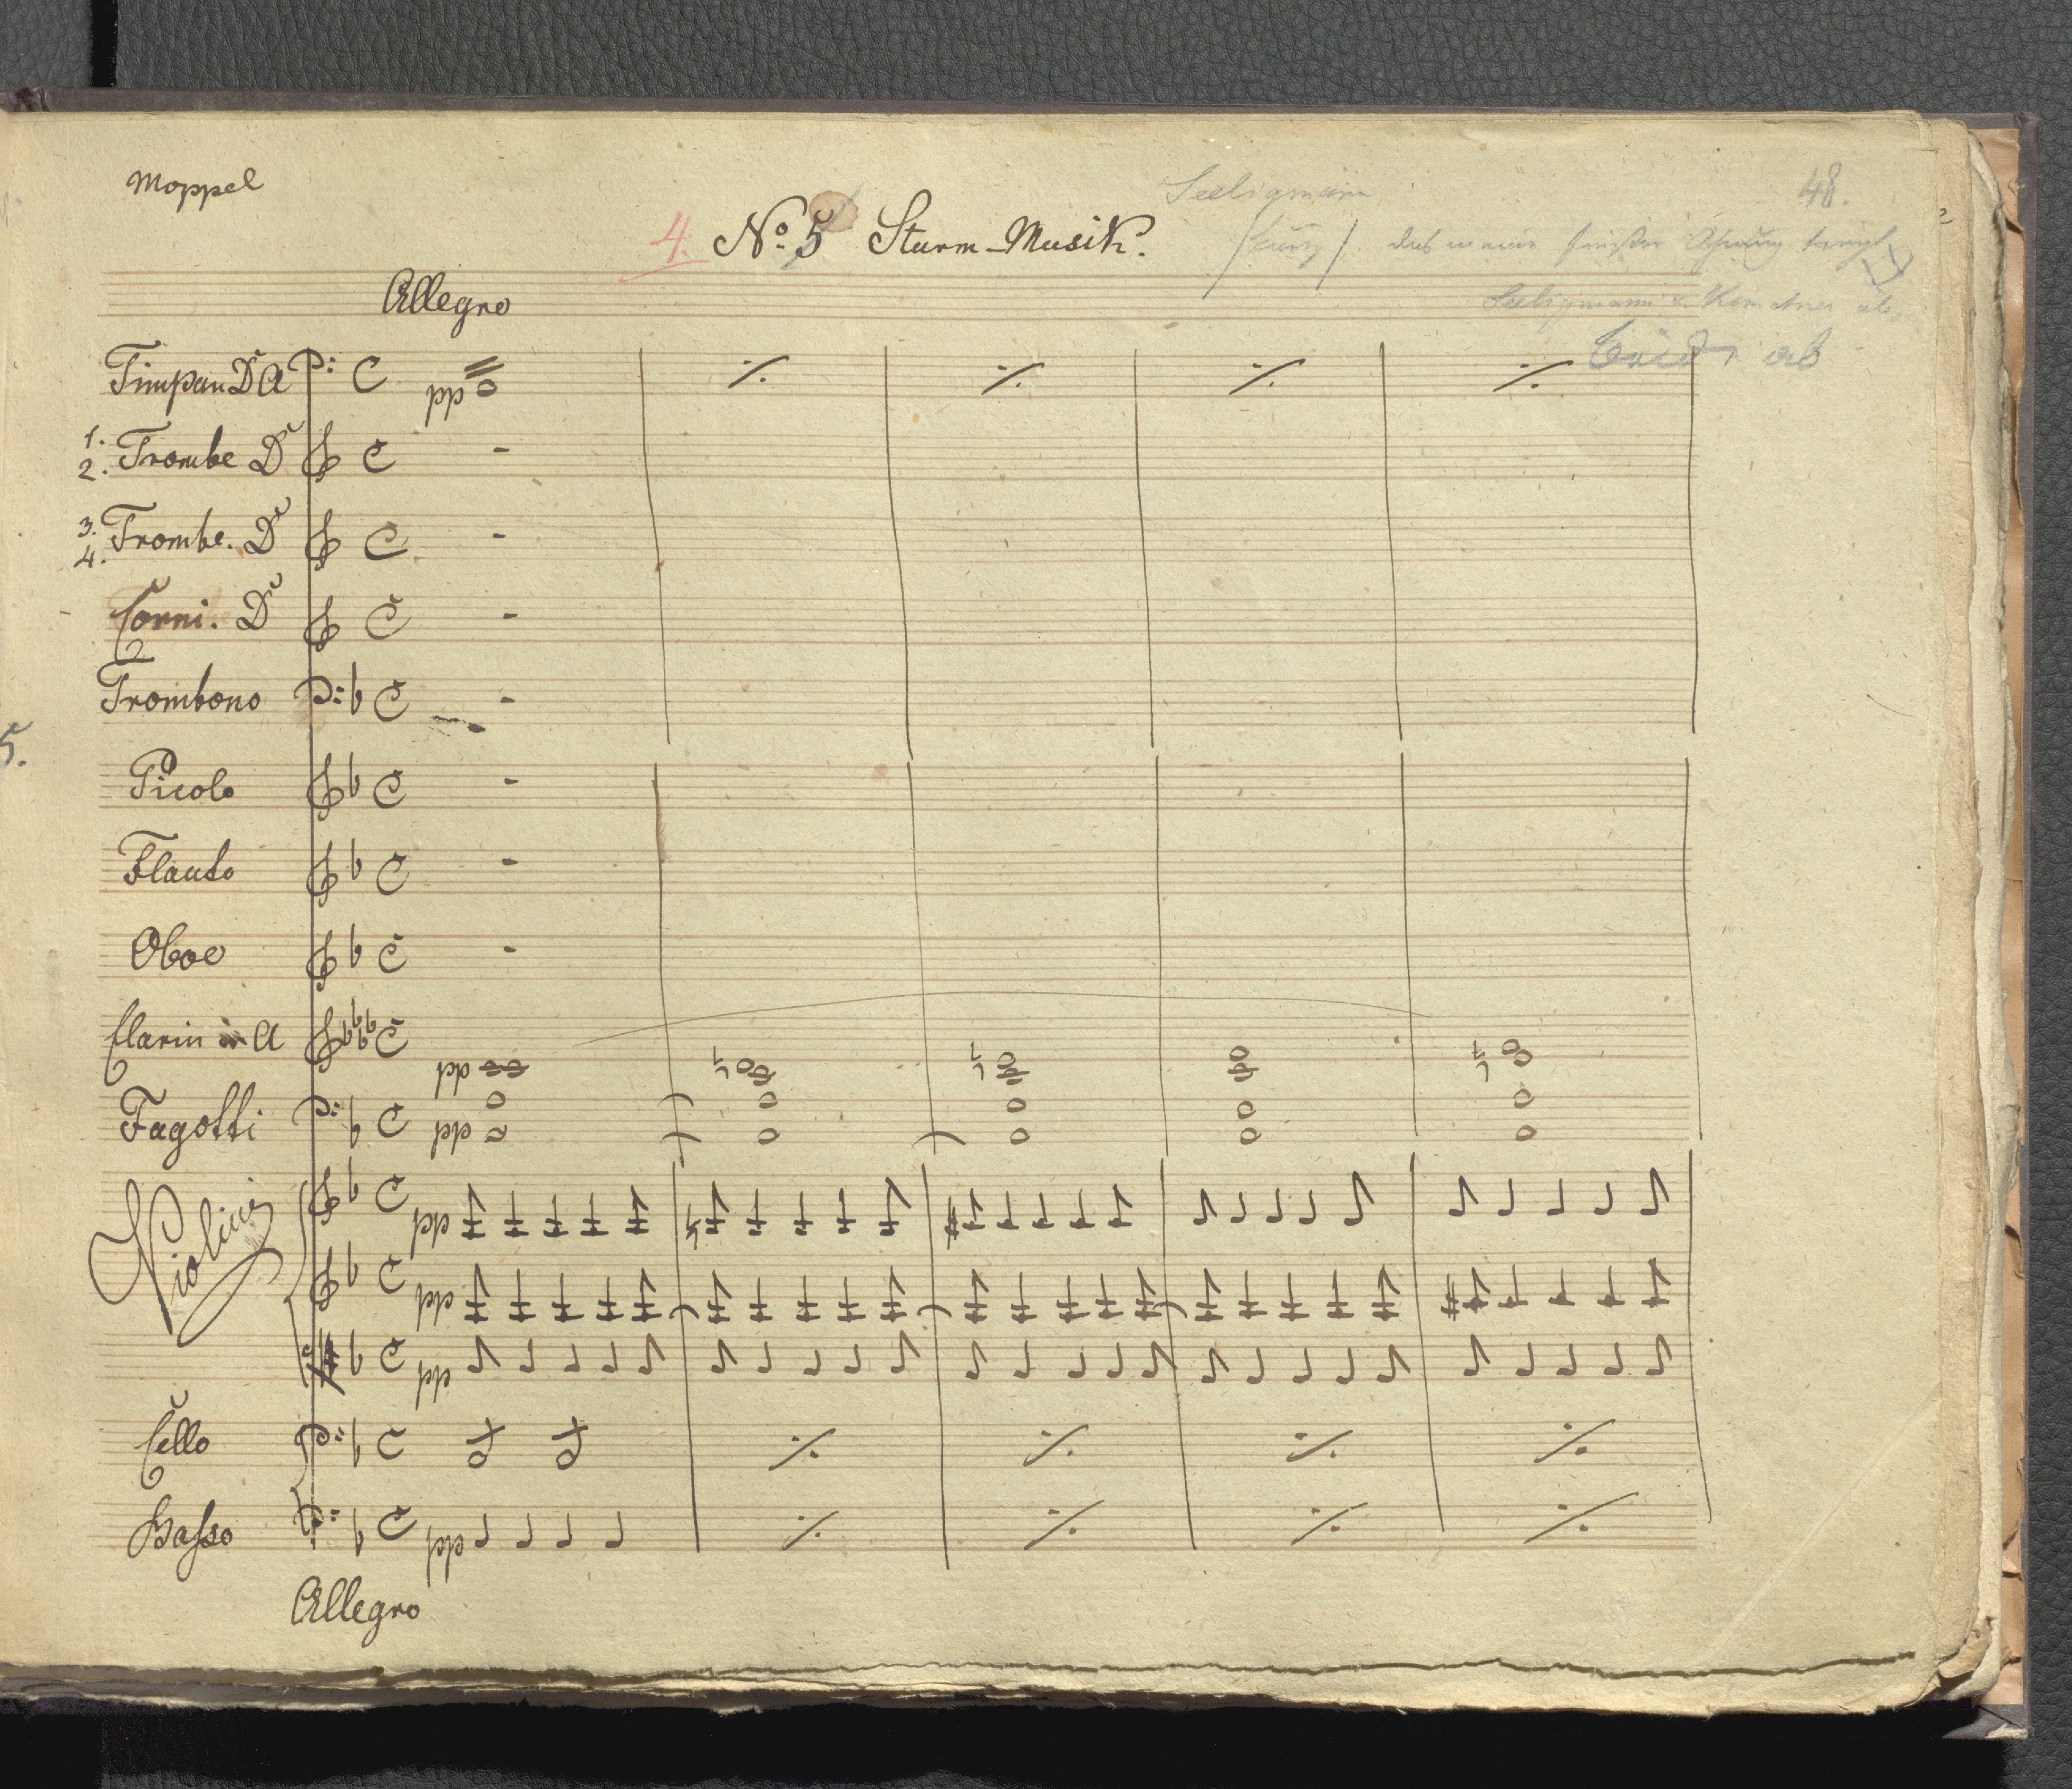 Moppel
Seeligmann
48.
4. No. 5 Sturm-Musik.
Allegro
ab
Timpan D A
pp
1.
2. Trombe D
3.
4. Trombe. D
Corni. D
Trombono
5.
Picolo
Flauto
Oboe
Clarin in A
pp
Fagotti
pp
Violini
pp
pp
pp
Cello
Basso
pp
Allegro